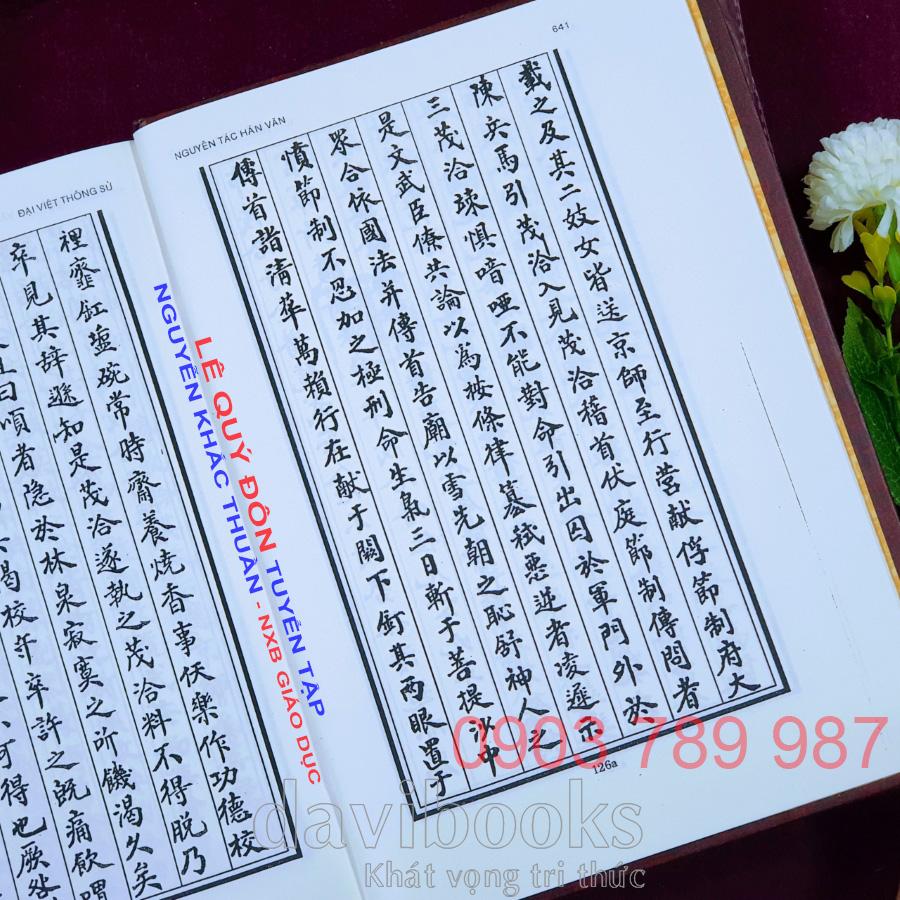 641
NGUYÊN TÁC HÁN VĂN
載之及其二妓女皆送京師至行營献俘節制府大
陳兵馬引茂洽入見茂洽稽首伏庭節制傳問者
三茂洽竦惧喑啞不能對命引出囚於軍門外於
是文武臣僚共論以為按條律篡弒惡逆者凌遲示
眾合依國法并傳首告廟以雪先朝之恥舒神人之
憤節制不忍加之極刑命生氣三日斬于菩提沙中
傳首詣清華萬賴行在献于闕下釘其兩眼置于
126a
ĐẠI VIỆT THÔNG SỬ
裡虀缸壚碗常時齋養燒香事伕樂作功德校
卒見其辭遜知是茂洽遂執之茂洽料不得脫乃
曰頃者隐於林泉寂寞之所饑渴久矣
渴校等卒許之既痛飲謂
可得也厥
LÊ QUÝ ĐÔN TUYỂN TẬP
NGUYỄN KHẮC THUẦN - NXB GIÁO DỤC
0903 789 987
davibooks
Khát vọng tri thức